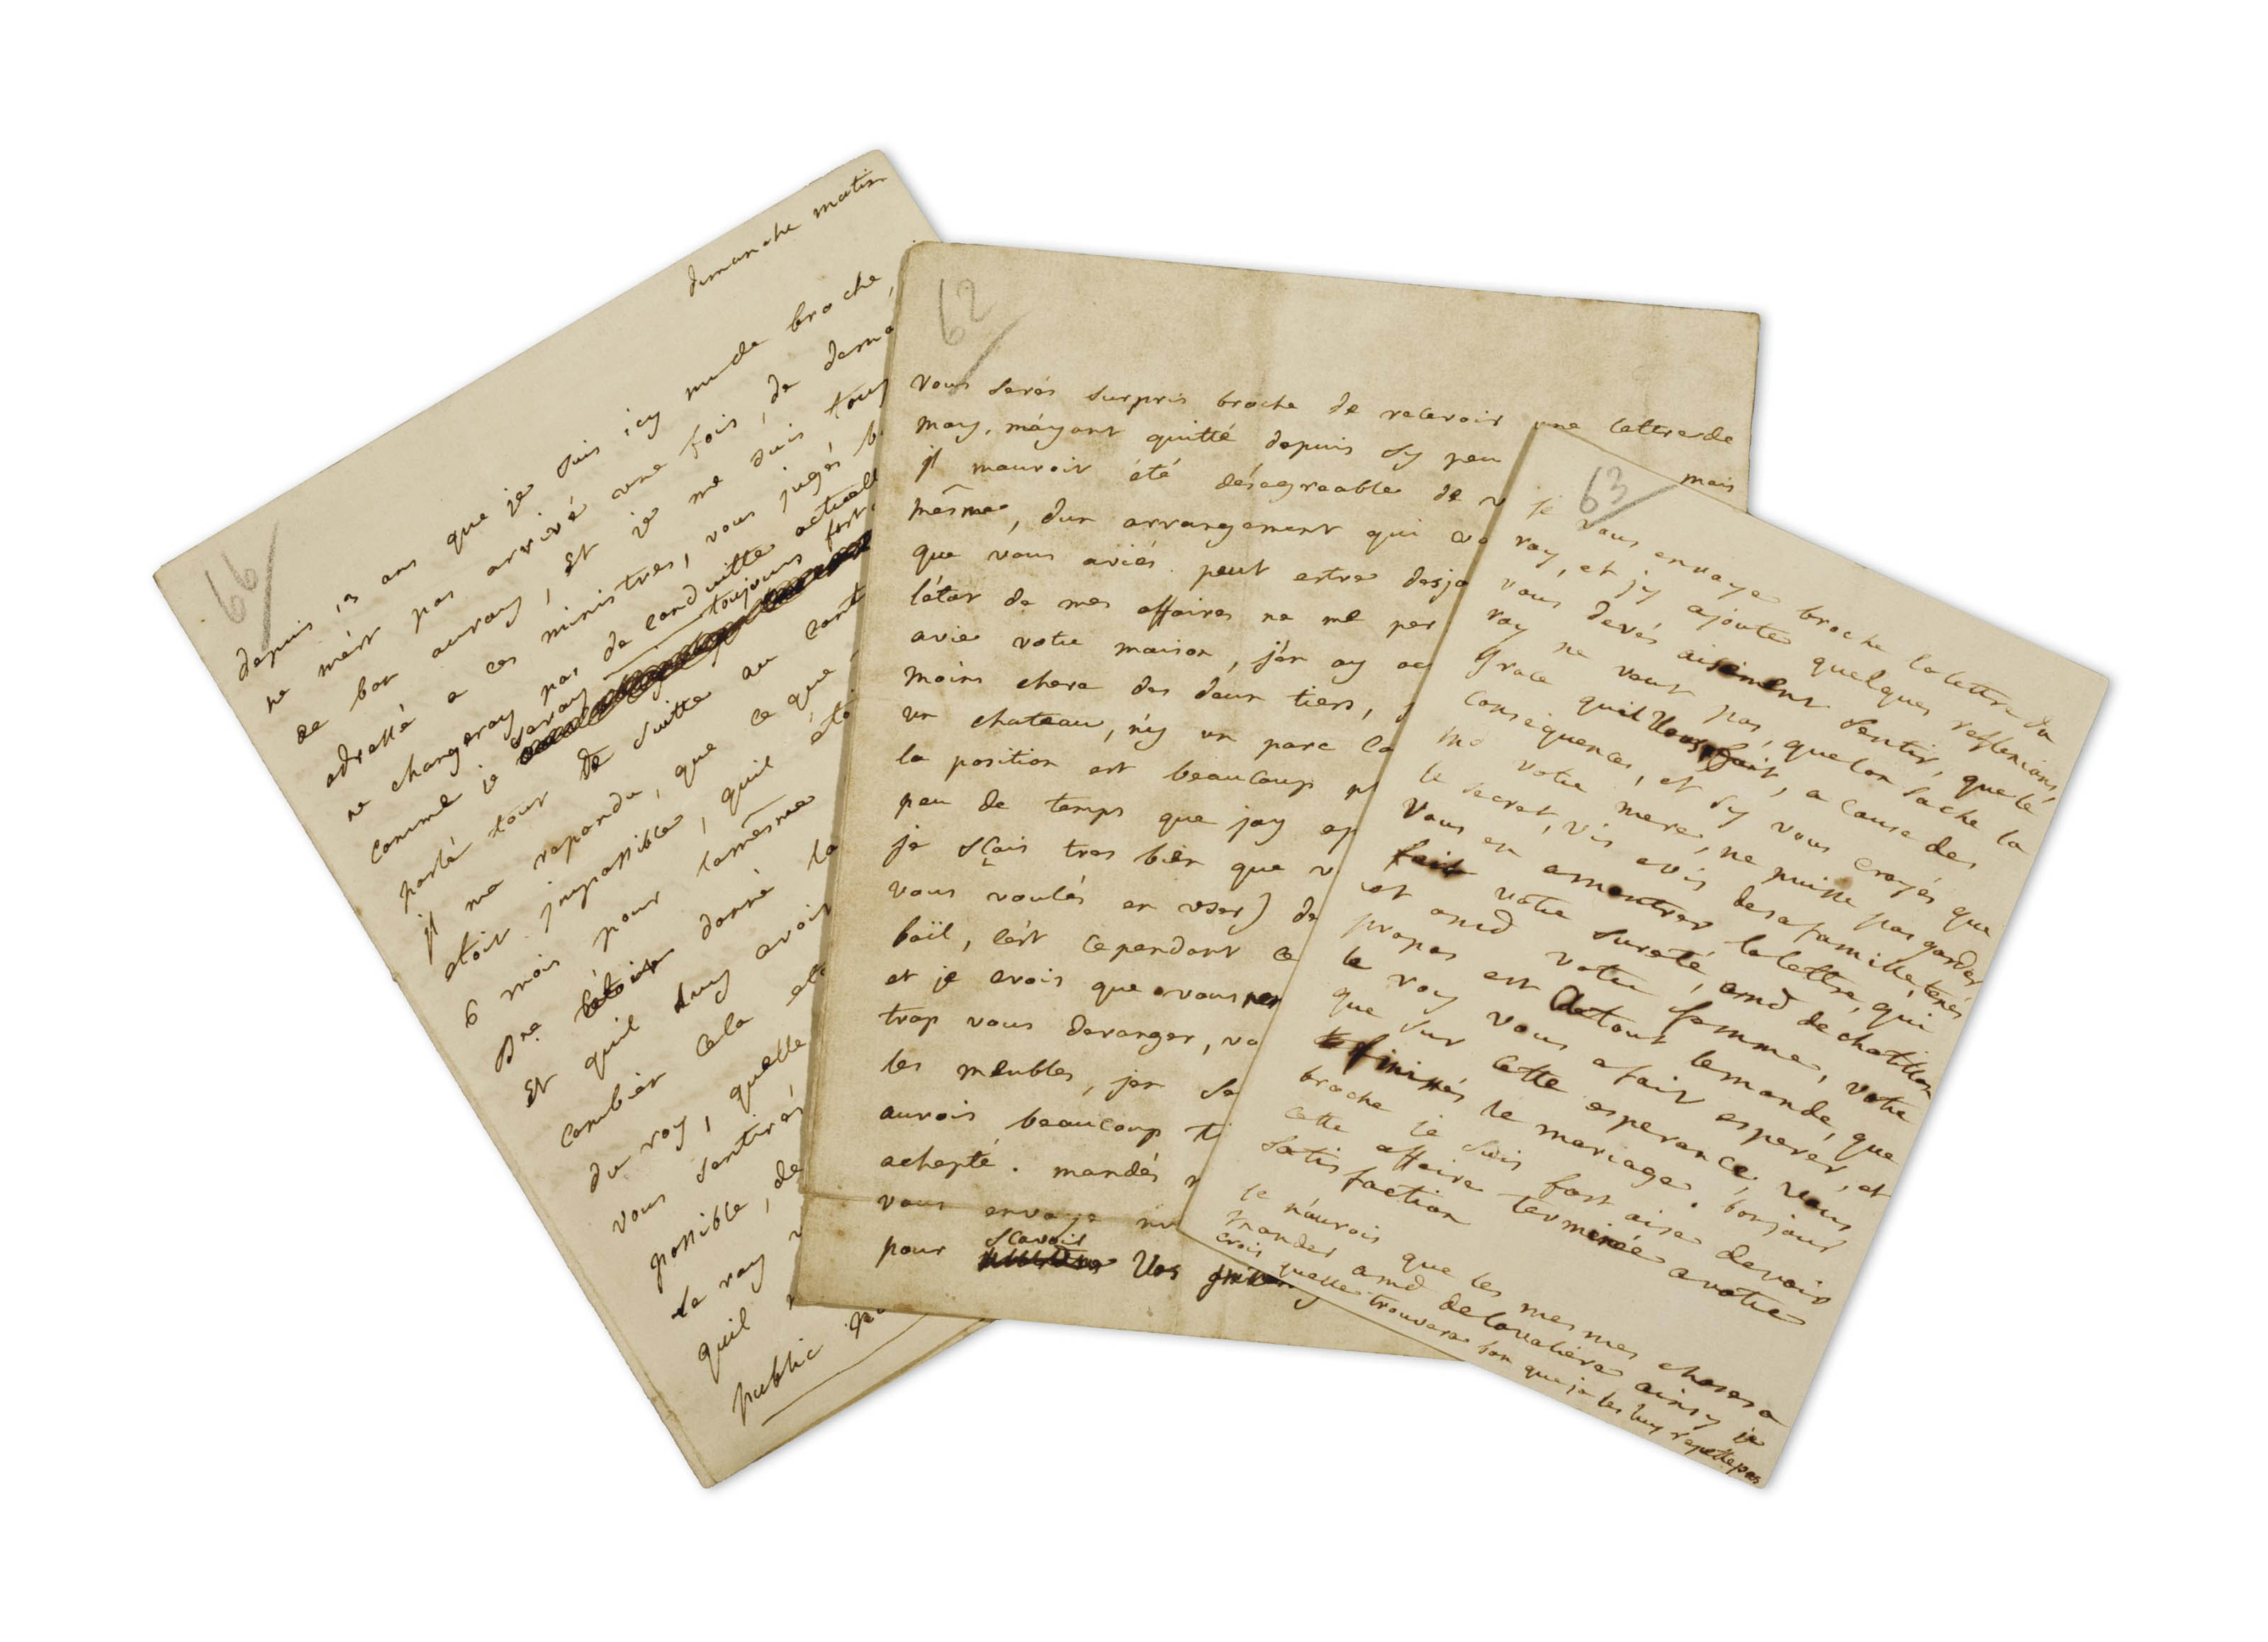 66
dimanche matin
depuis 13 ans que je suis icy mr de broche,
ne mèst pas arrivé une fois, de dema
de bon auroy, et je me suis touj
adressé a ces ministres, vous jugés b
ne changeray pas de conduitte actuell
comme je seray toujours fort
parlé tout de suitte au cont
jl me repondu, que ce que
etoit jmpossible, quil éto
6 mois pour lamêsme
Et quil luy avoit donné la
combièn cela et
du roy, quelle
vous sentirés
possible, de
le roy
quil
public
62
vous serés surpris broche de recevoir une lettre de
moy, máyant quitté depuis sy peu mais
jl mauroit été désagreable de v
mêsme, dun arrangement qui vo
que vous aviés peut estre desja
létat de mes affaires ne me per
avie votre maison, jén ay
moins chere des deux tiers,
un chateau, n'y un parc
la position est beaucoup
peu de temps que jay
je sçais tres bièn que v
vous voulés en user) de
bail, cést cependant ce
et je crois que vous
trop vous deranger, vo
les meubles, jen
aurois beaucoup
achepté. mandés
vous envoye
pour sçavoir vos
63
je vous envoye broche la lettre du
roy, et jy ajoute quelques reflexions,
vous devés aisément sentir, que le
roy ne veut pas, que lon sache la
grace quil vous fait, a cause des
consequences, et sy vous croyés que
md votre mere, ne puisse pas garder
le secret, vis avis desa famille, tenés
vous en amontrer la lettre, qui
fait votre sureté, amd de chatillon
et amd votre femme, votre
propos est detout lemonde, que
le roy vous afait esperer, et
que sur cette esperance, vous
finissés le mariage. bonjour
broche je suis fort aise devoir
cette affaire terminée avotre
satisfaction
je náurois que les mesmes choses a
mander amd delavaliere ainsy je
crois quelle trouvera bon que je les luy repette pas